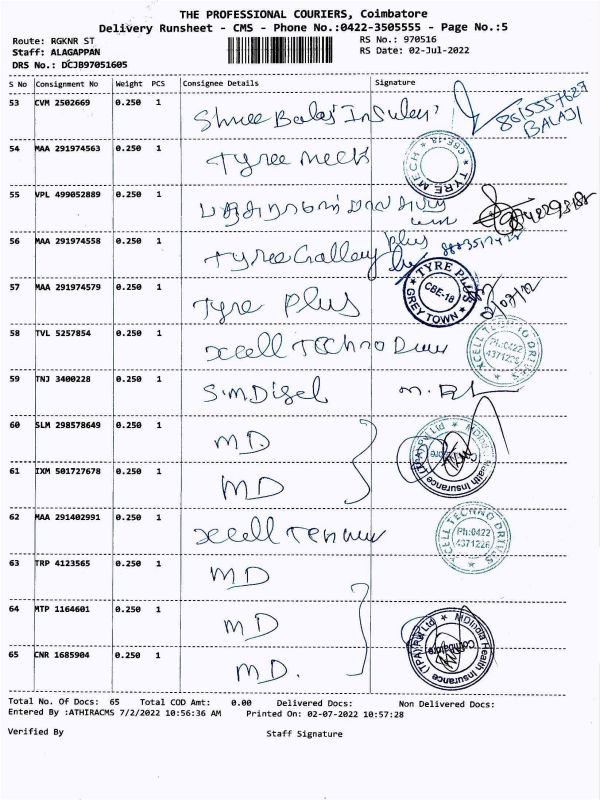 THE PROFESSIONAL COURIERS, Coimbatore
Delivery Runsheet - CMS - Phone No.:0422-3505555 - Page No.:5
Route: RGKNR ST RS No.: 970516
Staff: ALAGAPPAN RS Date: 02-Jul-2022
DRS No.: DCJB97051605
S No Consignment No Weight PCS Consignee Details Signature
53 CVM 2502669 0.250 1 Shree Balaji 8615557627
BALAJI
54 MAA 291974563 0.250 1 Tyre mech TYRE MECH CBE-18
55 VPL 499052889 0.250 1
56 MAA 291974558 0.250 1 Tyre Gallery plus
57 MAA 291974579 0.250 1 Tyre Plus TYRE PLUS CBE-18 GREY TOWN
58 TVL 5257854 0.250 1 Xcell Techno Drives XCELL TECHNO DRIVES Ph:0422 4371226
59 TNJ 3400228 0.250 1 S.M.Disel
60 SLM 298578649 0.250 1 MD MDIndia Health Insurance (TPA) Pvt Ltd Coimbatore
61 IXM 501727678 0.250 1 MD
62 MAA 291402991 0.250 1 Xcell XCELL TECHNO DRIVES Ph:0422 4371226
63 TRP 4123565 0.250 1 MD
64 MTP 1164601 0.250 1 MD MDIndia Health Insurance (TPA) Pvt Ltd Coimbatore
65 CNR 1685904 0.250 1 MD.
Total No. Of Docs: 65 Total COD Amt: 0.00 Delivered Docs: Non Delivered Docs:
Entered By :ATHIRACMS 7/2/2022 10:56:36 AM Printed On: 02-07-2022 10:57:28
Verified By Staff Signature